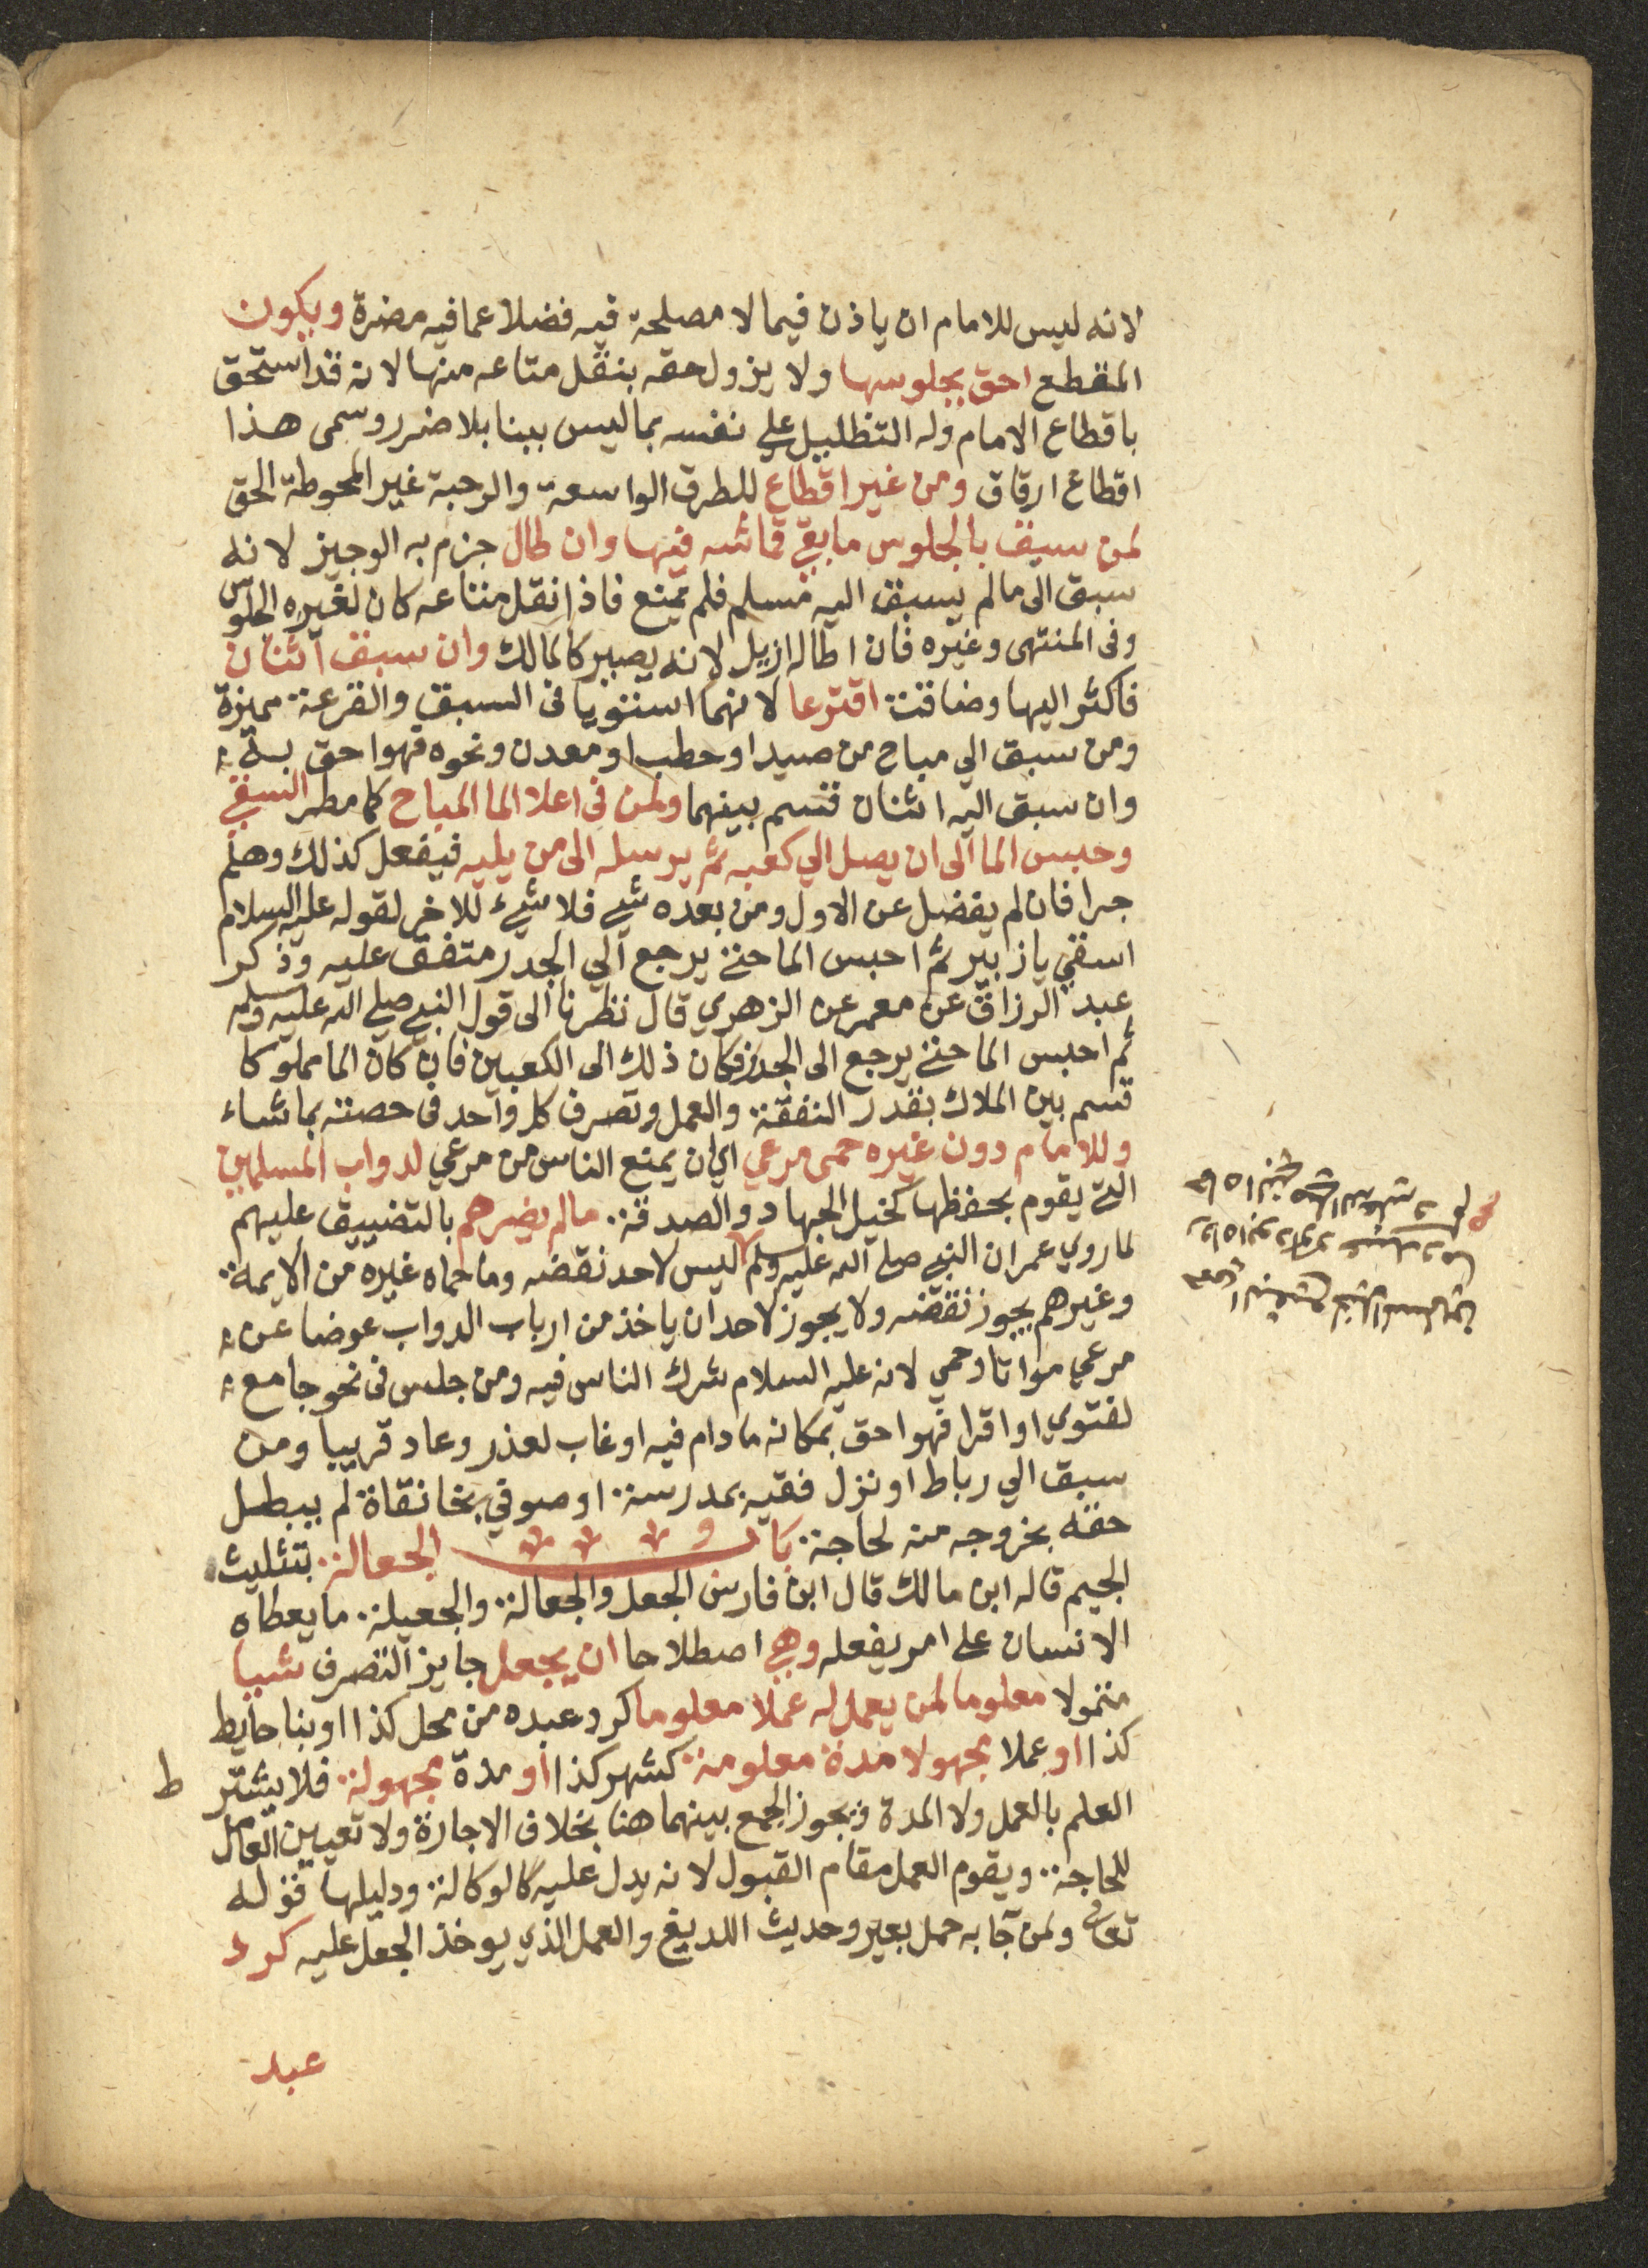 لانه ليس للامام ان ياذن فيما لا مصلحة فيه فضلا عما فيه مضرة ويكون
المقطع احق بجلوسها ولا يزول حقه بنقل متاعه منها لانه قد استحق
باقطاع الامام وله التظليل على نفسه بما ليس ببنا بلا ضرر وسمى هذا
اقطاع ارفاق ومن غير اقطاع للطرق الواسعة والرحبة غير المحوطة الحق
لمن سبق بالجلوس ما بقي قماشه فيها وان طال جزم به الوجيز لانه
سبق الى ما لم يسبق اليه مسلم فلم يمنع فاذا نقل متاعه كان لغيره الجلوس
وفى المنتهى وغيره فان اطاله ازيل لانه يصير كالمالك وان سبق اثنان
فاكثر اليها وضاقت اقترعا لانهما استويا فى السبق والقرعة مميزة
ومن سبق الي مباح من صيد او حطب او معدن ونحوه فهو احق به
وان سبق اليه اثنان قسم بينهما ولمن فى اعلا الما المباح كما مطر السقي
وحبس الما الى ان يصل الي كعبه ثم يرسله الى من يليه فيفعل كذلك وهلم
جرا فان لم يفضل عن الاول ومن بعده شي فلا شيء للاخر لقوله عليه السلام
اسقي يا زبير ثم احبس الما حتى يرجع الي الجدر متفق عليه وذكر
عبد الرزاق عن معمر عن الزهري قال نظرنا الى قول النبي صلى الله عليه وسلم
ثم احبس الما حتى يرجع الى الجدر فكان ذلك الى الكعبين فان كان الما مملوكا
قسم بين الملاك بقدر النفقة والعمل وتصرف كل واحد فى حصته بما شاء
وللامام دون غيره حمى مرعي اي ان يمنع الناس من مرعي لدواب المسلمين
التي يقوم بحفظها كخيل الجهاد والصدقة ما لم يضرهم بالتضييق عليهم
لما روي عمر ان النبي صلى الله عليه وسلم ليس لاحد نقضه وما حماه غيره من الايمة
وغيرهم يجوز نقضه ولا يجوز لاحد ان ياخذ من ارباب الدواب عوضا عن
مرعي موات او حمي لانه عليه السلام شرك الناس فيه ومن جلس فى نحو جامع
لفتوي او اقرا فهو احق بمكانه ما دام فيه او غاب لعذر وعاد قريبا ومن
سبق الي رباط او نزل فقيه بمدرسة او صوفي بخانقاة لم يبطل
حقه بخروجه منه لحاجة باب الجعالة بتثليث
الجيم قاله ابن مالك قال ابن فارس الجعل والجعالة والجعيلة ما يعطاه
الانسان على امر يفعله وهي اصطلاحا ان يجعل جايز التصرف شيا
متمولا معلوما لمن يعمل له عملا معلوما كرد عبده من محل كذا او بنا حايط
كذا او عملا مجهولا مدة معلومة كشهر كذا او مدة مجهولة فلا يشتر ط
العلم بالعمل ولا المدة ويجوز الجمع بينهما هنا بخلاف الاجارة ولا تعيين العامل
للحاجة ويقوم العمل مقام القبول لانه يدل عليه كالوكالة ودليلها قوله
تعالى ولمن جآ به حمل بعير وحديث اللديغ والعمل الذي يوخذ الجعل عليه كرد
عبد
حمى النقيع لخيل المسلمين
رواه ابو داود